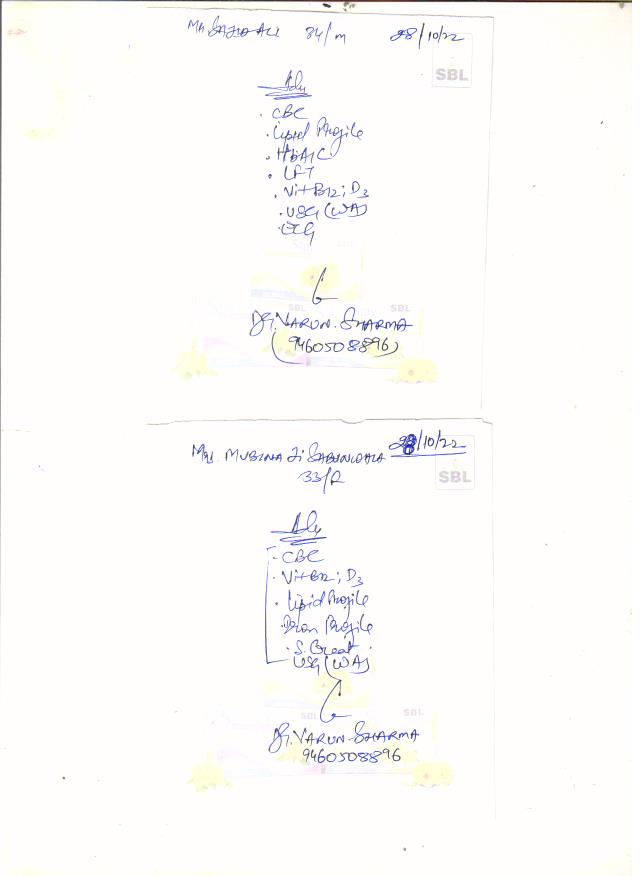 Mr. SAJID ALI 34/M 28/10/22
SBL
Adv
. CBC
. Lipid Profile
. HbA1C
. LFT
. Vit B12 ; D3
. USG (WA)
. ECG
SBL
SBL
Dr. VARUN. SHARMA
(9460508896)
Mrs. MUBINA Ji 28/10/22
33/F
SBL
Adv
- CBC
. Vit B12 ; D3
. Lipid Profile
. Iron Profile
. S. Creat.
USG (WA)
SBL
SBL
Dr. VARUN SHARMA
9460508896